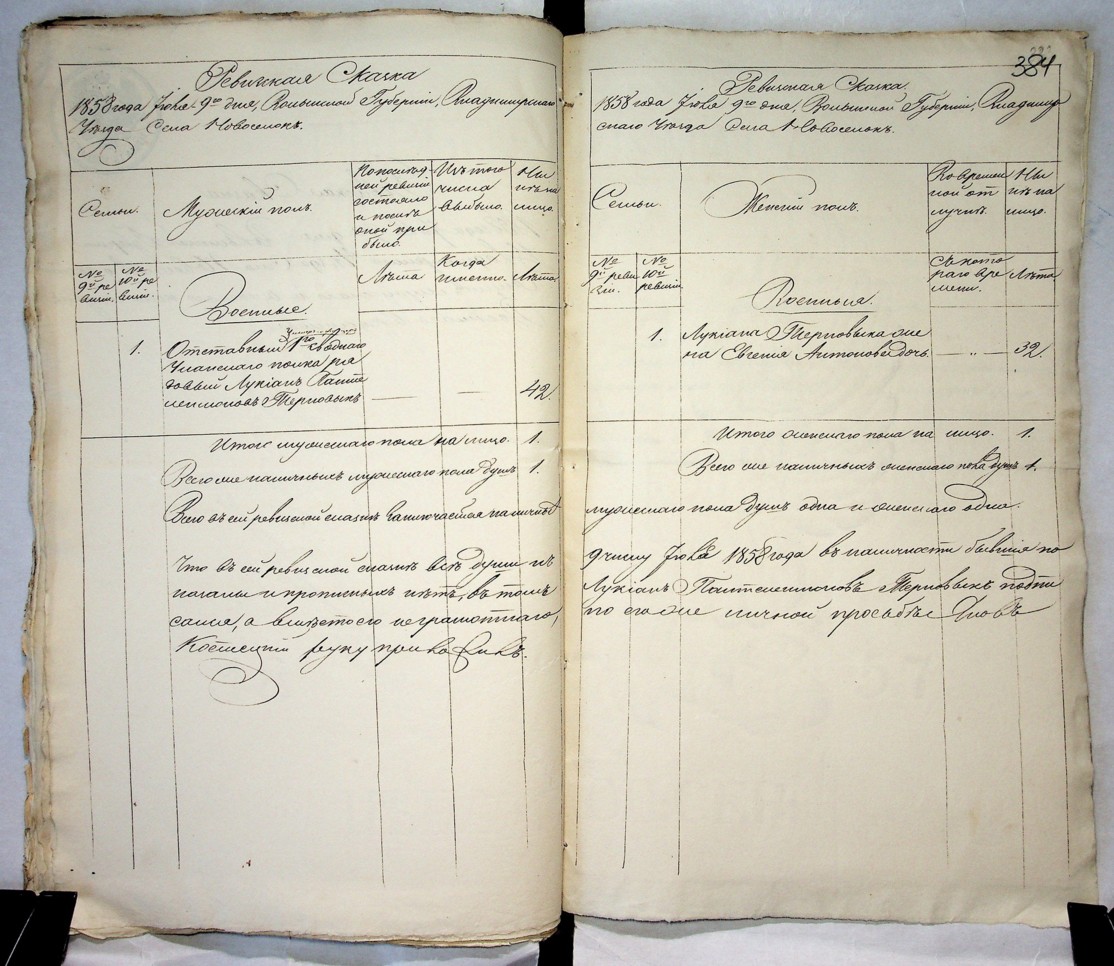 Ревизская Сказка
1858 года Июня 9го дня, Волынской Губерніи, Владимирскаго
Уѣзда Села Новоселокъ.
Семьи.
Мужескій полъ.
По послѣд-
ней ревизіи
состояло
и послѣ
оной при
было.
Изъ того
числа
выбыло.
Ны
нѣ на
лицо.
№
9й ре
визіи.
№
10й ре
визіи.
Лѣта
Когда
именно.
Лѣта.
Военные.
1.
Отставный 1го своднаго
Уланскаго полка ря
довый Лукіанъ Панте
леимоновъ Терновыкъ
42.
Итого мужескаго пола на лицо. 1.
Всего же наличныхъ мужескаго пола душъ 1.
Всего въ сей ревизской сказкѣ заключается наличныхъ
Что въ сей ревизской сказкѣ всѣ души къ
показаны и прописныхъ нѣтъ, въ томъ
самые, а вмѣсто его неграмотнаго,
Костецкій руку приложилъ.
384
Ревизская Сказка.
1858 года Июня 9го дня, Волынской Губерніи, Владимир
скаго Уѣзда Села Новоселокъ.
Семьи.
Женскій полъ.
Во времен
ной от
лучкѣ.
Ны
нѣ на
лицо.
№
9й реви
зіи.
№
10й
ревизіи.
Съ кото
раго вре
мени.
Лѣта.
Военныя.
1.
Лукіана Терновыка же
на Евгенія Антонова дочь. — „ — 32.
Итого женскаго пола на лицо. 1.
Всего же наличныхъ женскаго пола душъ 1.
мужескаго пола душъ одна и женскаго одна.
9 числу Июня 1858 года въ наличности бывшія по
Лукіанъ Пантелеимоновъ Терновыкъ подпи
по его же личной просьбѣ